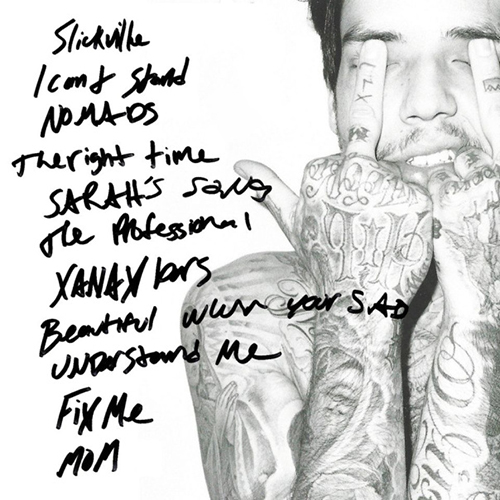 Slickville
I cant Stand
NOMADS
The right time
SARAH'S Song
The Professional
XANAX bars
Beautiful when your SAD
UNDerstand Me
Fix Me
MOM